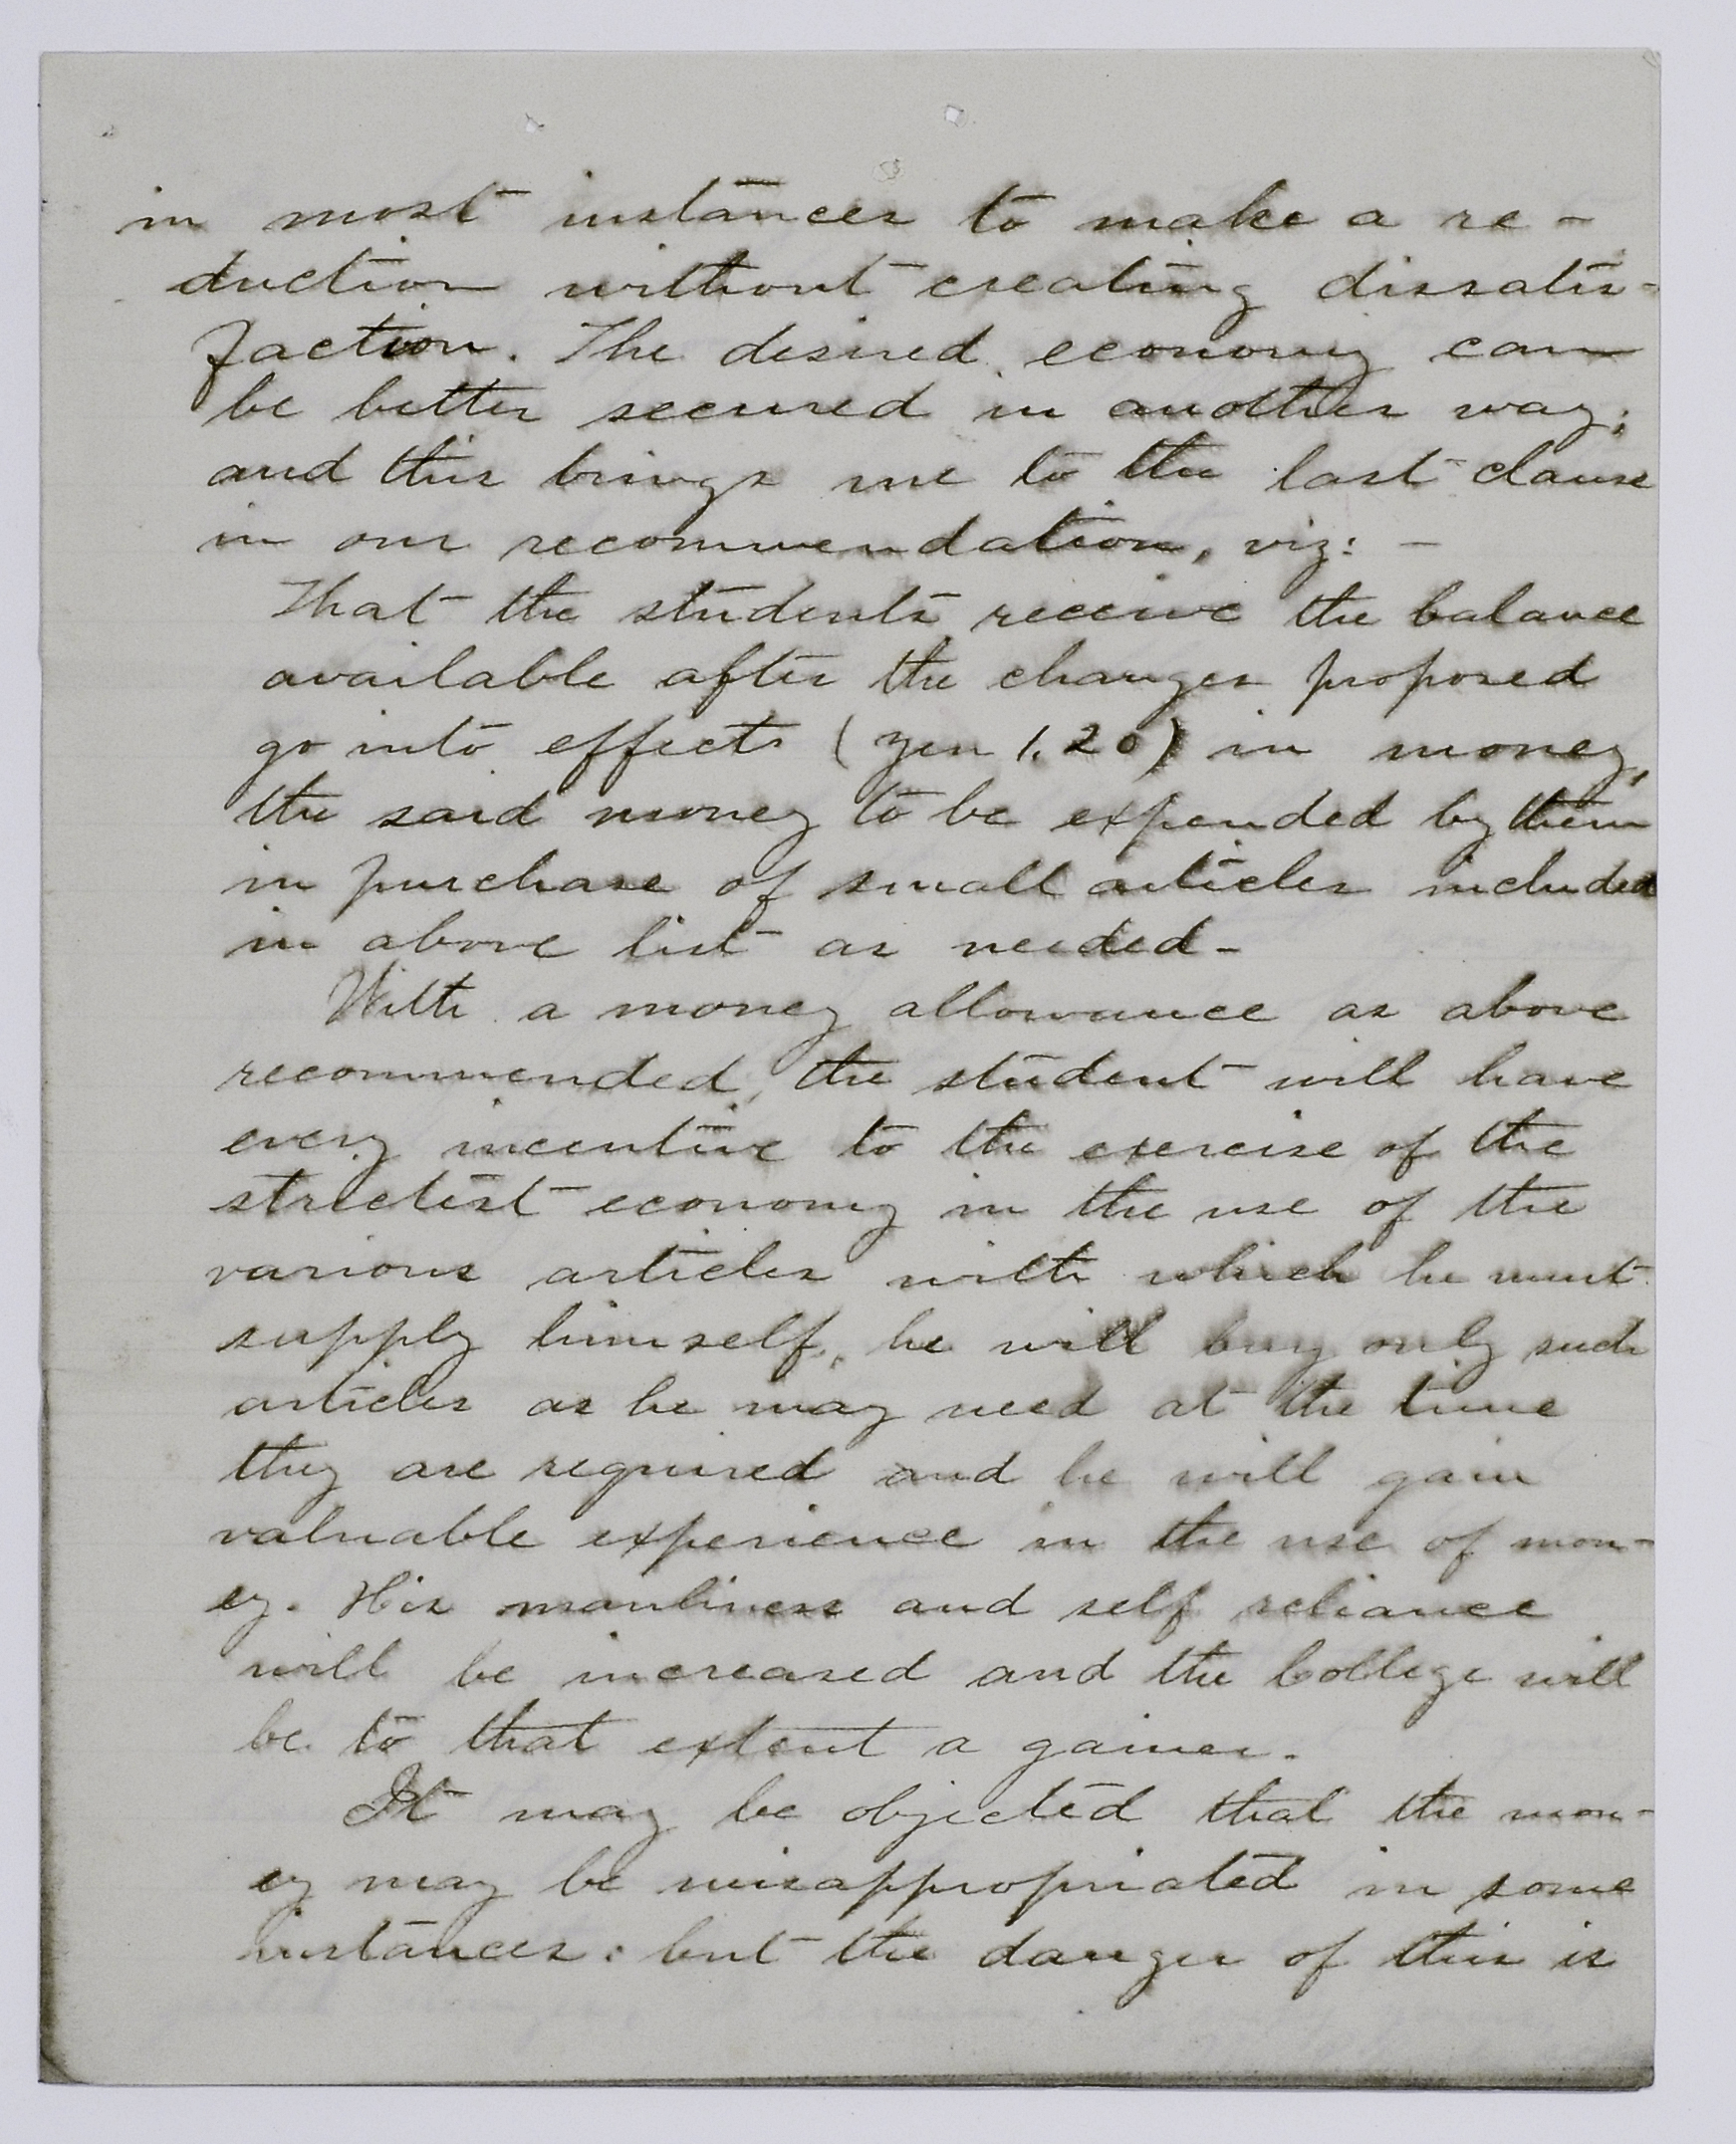 in most instances to make a re-
duction without creating dissatis-
faction. The desired economy can
be better secured in another way;
and this brings me to the last clause
in our recommendation, viz: -
That the students receive the balance
available after the changes proposed
go into effects (yen 1.20) in money,
the said money to be expended by them
in purchase of small articles included
in above list as needed-
With a money allowance as above
recommended, the student will have
every incentive to the exercise of the
strictest economy in the use of the
various articles with which he must
supply himself, he will buy only such
articles as he may need at the time
they are required and he will gain
valuable experience in the use of mon-
ey. His manliness and self reliance
will be increased and the College will
be to that extent a gainer.
It may be objected that the mon-
ey may be misappropriated in some
instances: but the danger of this is